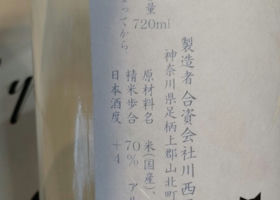 量
720ml
まってから
製造者 合資会社川西
神奈川県足柄上郡山北町
原材料名 米(国産)、
精米歩合 70% ア
日本酒度 +4